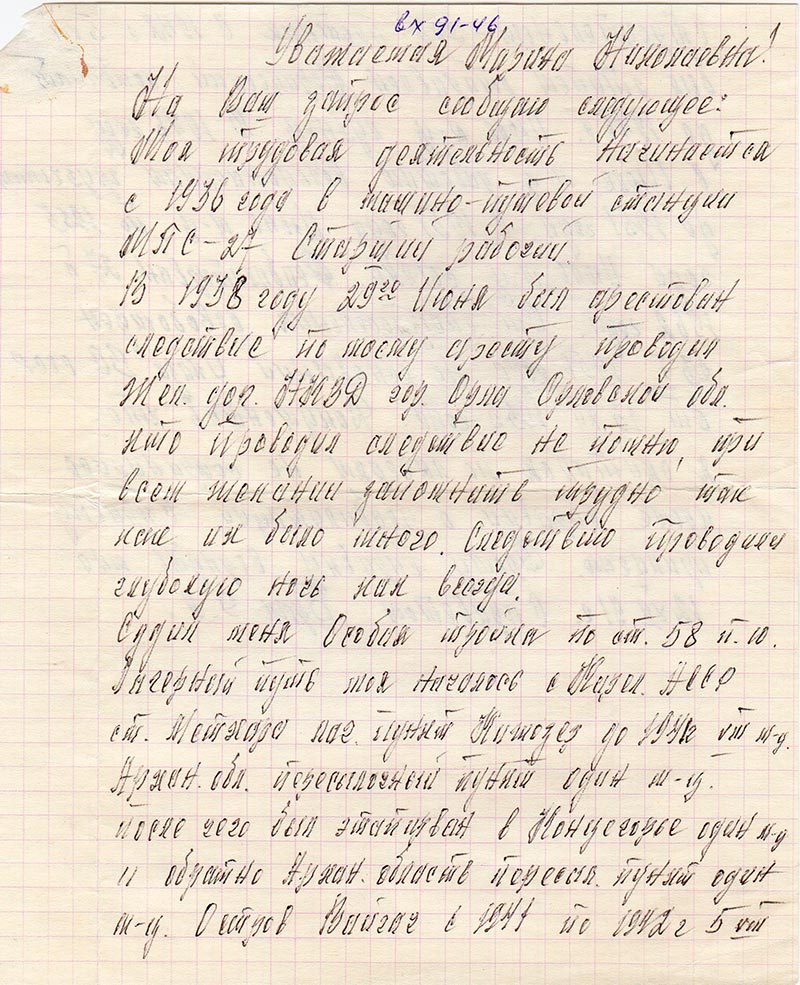 вх 91-46
Уважаемая Марина Николаевна!
На Ваш запрос сообщаю следующее:
Моя трудовая деятельность начинается
с 1936 года в машино-путевой станции
МПС-27 Старший рабочий.
В 1938 году 29го Июня был арестован
следствие по моему аресту проводил
Жел. дор. НКВД гор. Орла Орловской обл.
кто проводил следствие не помню, при
всем желании запомнить трудно так
как их было много. Следствие проводили
глубокую ночь как всегда.
Судил меня Особая тройка по ст. 58 п. 10.
Лагерный путь моя началось с Карел. АССР
ст. лаг. пункт до м-ц.
Архан. обл. пересылочный пункт один м-ц.
после чего был этапирван в один м-ц
и обратно Архан. область пересыл. пункт один
м-ц. Остров Вайгач с 1941 по 1942 г